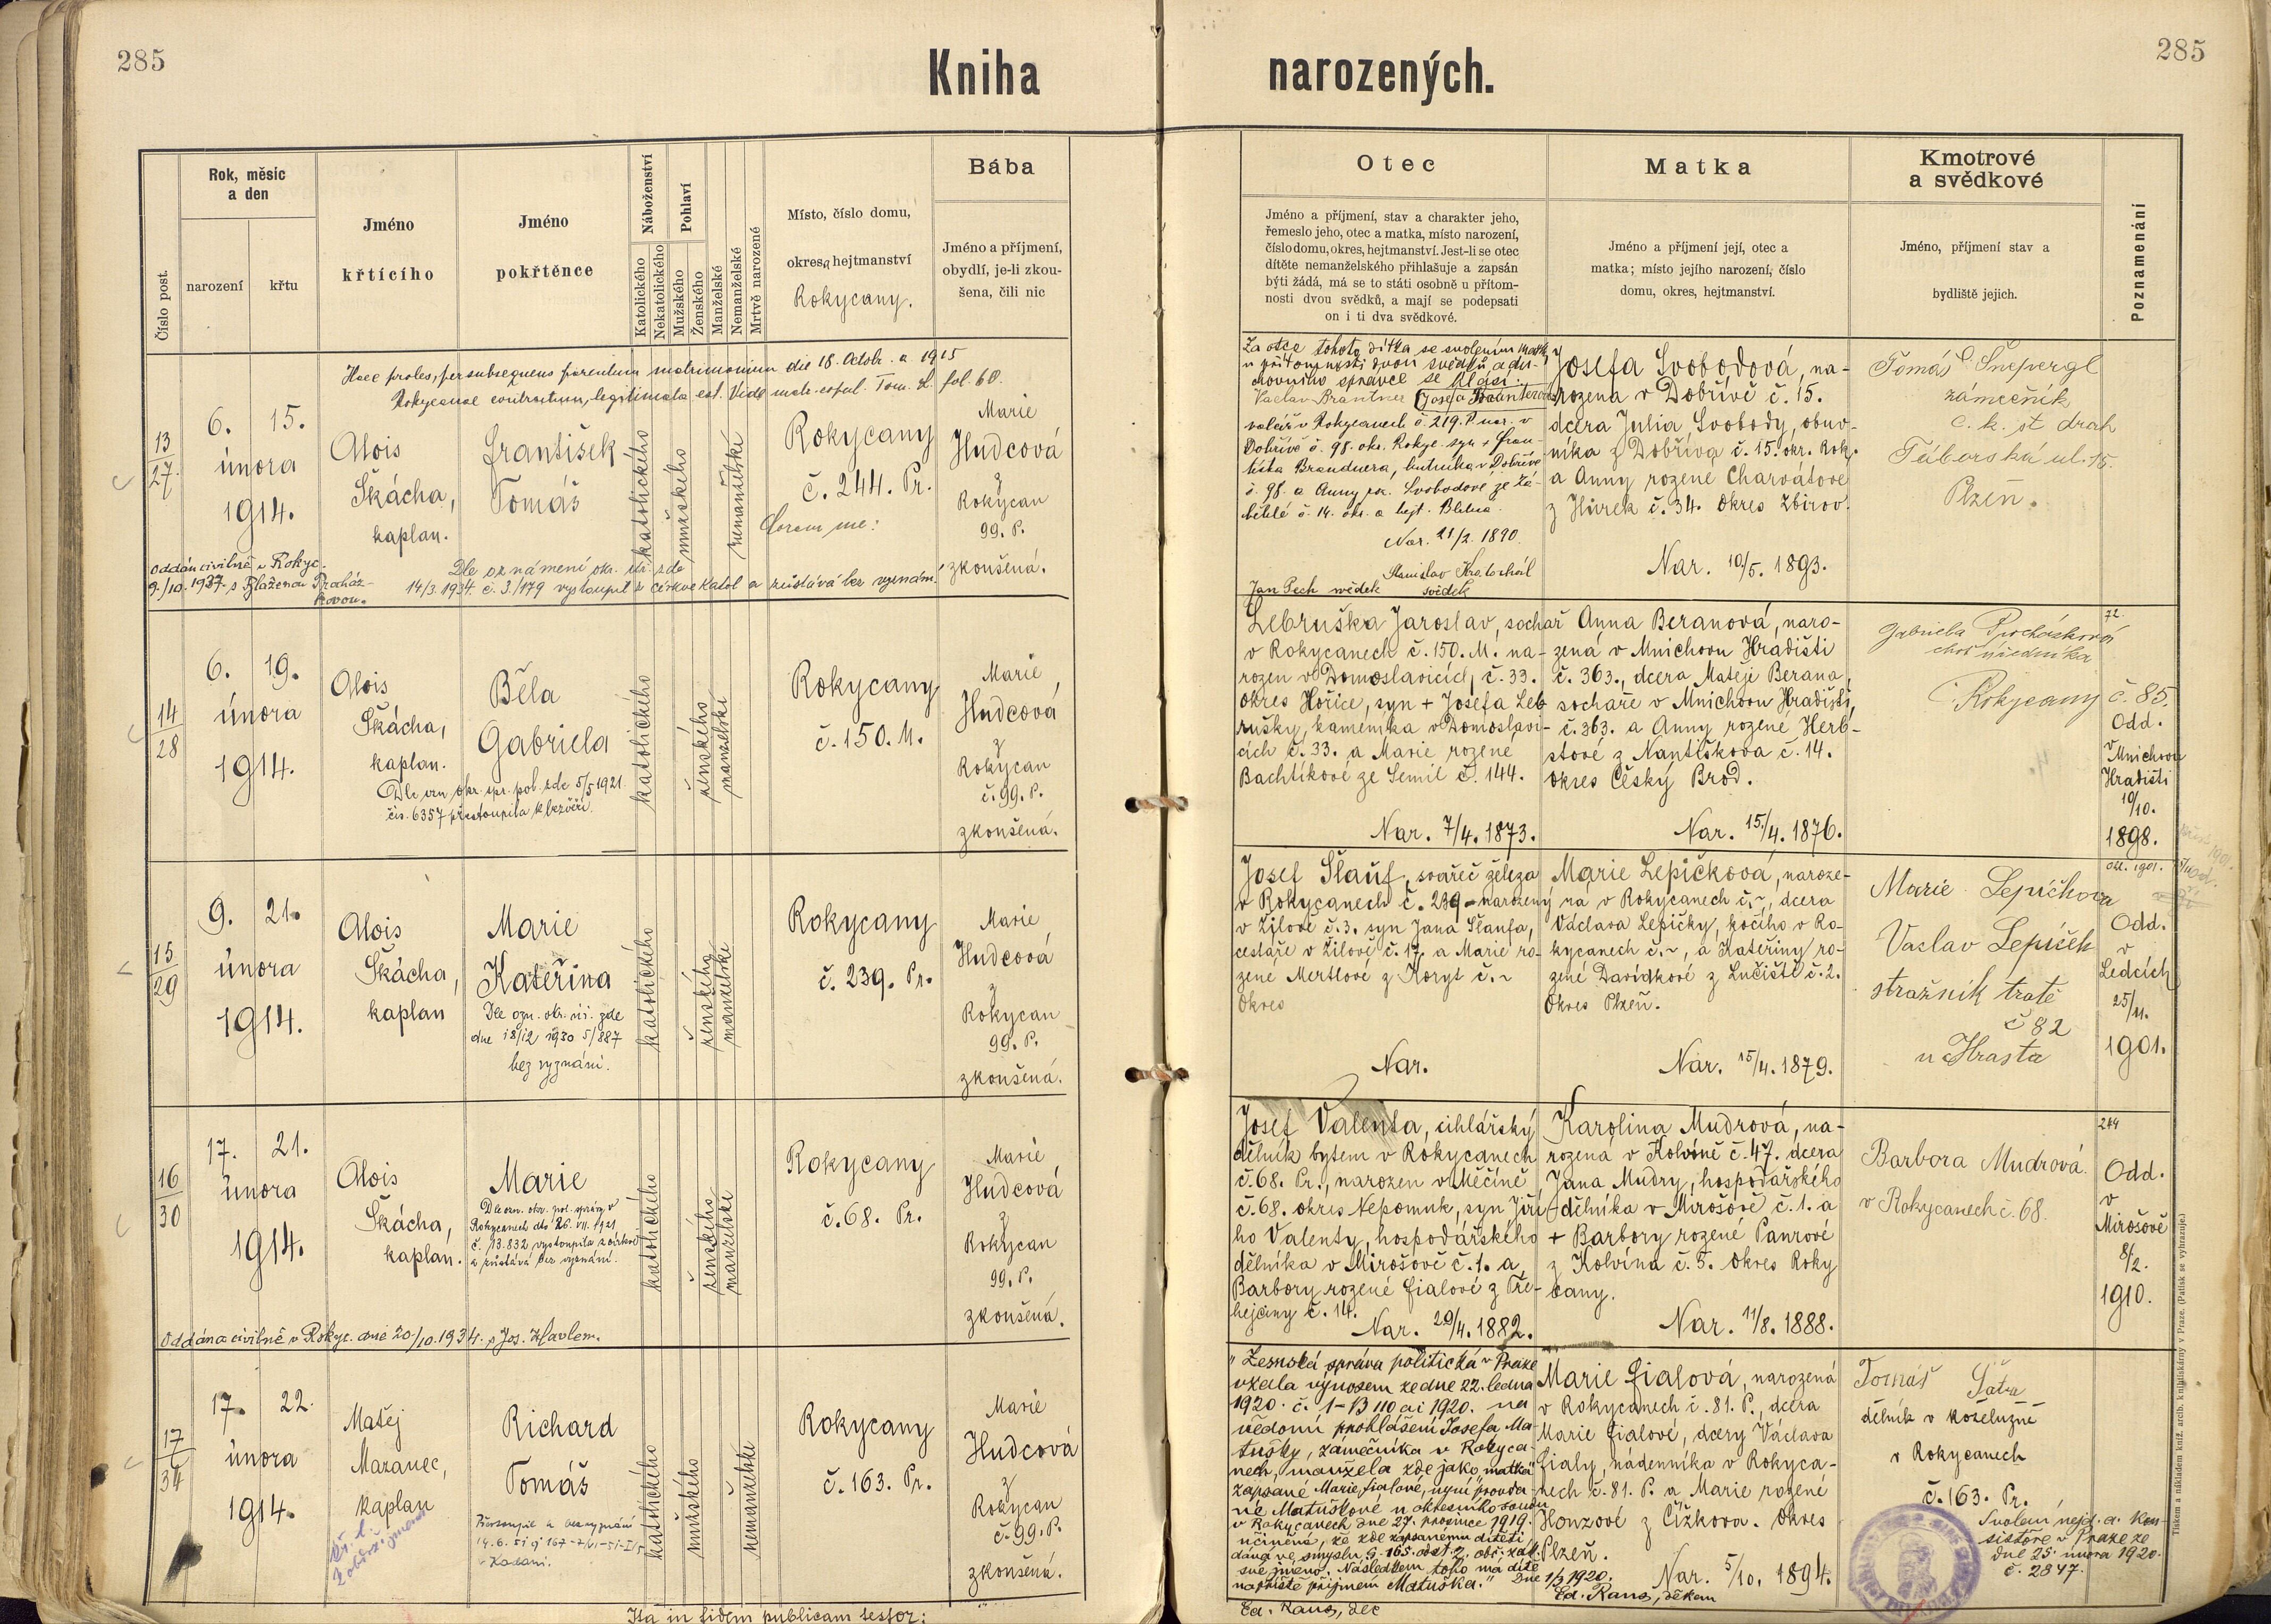 285
Kniha
narozených.
285
Číslo post.
Rok, měsíc
a den
narození
křtu
Jméno
křtícího
Jméno
pokřtěnce
Náboženství
Katolického
Nekatolického
Pohlaví
Mužského
Ženského
Manželské
Nemanželské
Mrtvě narozené
Místo, číslo domu,
okres, hejtmanství
Rokycany.
Bába
Jméno a příjmení,
obydlí, je-li zkou-
šena, čili nic
Otec
Jméno a příjmení, stav a charakter jeho,
řemeslo jeho, otec a matka, místo narození,
číslo domu, okres, hejtmanství. Jest-li se otec
dítěte nemanželského přihlašuje a zapsán
býti žádá, má se to státi osobně u přítom-
nosti dvou svědků, a mají se podepsati
on i ti dva svědkové.
Matka
Jméno a příjmení její, otec a
matka; místo jejího narození, číslo
domu, okres, hejtmanství.
Kmotrové
a svědkové
Jméno, příjmení stav a
bydliště jejich.
Poznamenání
Haec proles, per subsequens parentum matrimonium die 18. Octobr. a 1915
Rokycanae contractum, legitimata est. Vide matr. copul. Tom. L. fol. 60.
13
27
6. 15.
února
1914.
Alois
Škácha,
kaplan.
František
Tomáš
katolického
mužského
nemanželské
Rokycany
č. 244. Pr.
Coram me:
Marie
Hudcová
z
Rokycan
99. P.
zkoušená.
Oddán civilně v Rokyc.
9./10. 1937 s Blaženou Procház-
kovou.
Dle oznámení okr. úř. zde
14/3. 1934. č. 3./179 vystoupil z církve katol a zůstává bez vyznám.
Za otce tohoto dítka se svolením matky
u přítomnosti dvou svědků a du-
chovního správce se hlásí:
Václav Brantner Josefa Brantnerová
valář v Rokycanech č. 219. P. nar. v
Dobřívě č. 98. okr. Rokyc. syn + Fran-
tiška Brandnera, hutníka v Dobřívě
č. 98. a Anny roz. Svobodové ze Zá-
běhlé č. 14. okr. a hejt. Blatná.
Nar. 21/2. 1890.
Stanislav Kratochvíl
Jan Pech svědek svědek
Josefa Svobodová, na-
rozena v Dobřívě č. 15.
dcera Julia Svobody, obuv-
níka z Dobříva č. 15. okr. Rok.
a Anny rozené Charvátové
z Hůrek č. 34. Okres Zbirov.
Nar. 10/5. 1893.
Tomáš Šnepergl
zámečník
c. k. st drah
Táborská ul. 15.
Plzeň.
14
28
6. 19.
února
1914.
Alois
Škácha,
kaplan.
Běla
Gabriela
Dle vyn. okr. spr. pol. zde 5/5 1921
čís. 6357 přestoupila k bezvěří.
katolického
ženského
manželské
Rokycany
č. 150. M.
Marie
Hudcová
z
Rokycan
č. 99. P.
zkoušená.
Lebruška Jaroslav, sochař
v Rokycanech č. 150. M. na-
rozen v Domoslavicích, č. 33.
okres Hořice, syn + Josefa Leb
rušky, kameníka v Domoslavi-
cích č. 33. a Marie rozené
Bachtíkové ze Semil č. 144.
Nar. 7/4. 1873.
Anna Beranová, naro-
zená v Mnichovu Hradišti
č. 363., dcera Matěje Berana,
sochaře v Mnichovu Hradišti,
č. 363. a Anny rozené Herb-
stové z Nantiškova č. 14.
Okres Česky Brod.
Nar. 15./4. 1876.
Gabriela Procházková
choť úředníka
Rokycany č. 85.
72.
Odd.
v
Mnichovu
Hradišti
10/10.
1898.
15
29
9. 21.
února
1914.
Alois
Škácha,
kaplan
Marie
Kateřina
Dle ozn. okr. úř. zde
dne 18/12 1930 5/887
bez vyznání.
katolického
ženského
manželské
Rokycany
č. 239. Pr.
Marie
Hudcová
z
Rokycan
99. P.
zkoušená.
Josef Šlauf, svářeč železa
v Rokycanech č. 239 - narozený
v Žilově č. 3. syn Jana Šlaufa,
cestáře v Žilově č. 17. a Marie ro-
zené Mertlové z Koryt č. ~
Okres
Nar.
Marie Lepičková, naroze-
ná v Rokycanech č. ~, dcera
Václava Lepičky, kočího v Ro-
kycanech č. ~, a Kateřiny ro-
zené Davídkové z Lučiště č. 2.
Okres Plzeň.
Nar. 15/4. 1879.
Marie Lepičkova
Vaslav Lepíček
stražník tratě
č 82
u Chrasta
Odd.
v
Ledcích
25/11.
1901.
16
30
17. 21.
února
1914.
Alois
Škácha,
kaplan.
Marie
Dle ozn. okr. pol. správy v
Rokycanech dto 26. VII. 1921
č. 13.832 vystoupila z církve
a zůstává bez vyznání.
katolického
ženského
manželské
Rokycany
č. 68. Pr.
Marie
Hudcová
z
Rokycan
99. P.
zkoušená.
Oddána civilně v Rokyc. dne 20./10. 1934. s Jos. Havlem.
Josef Valenta, cihlářský
dělník bytem v Rokycanech
č. 68. Pr., narozen v Měčíně
č. 68. okres Nepomuk, syn Jiří-
ho Valenty, hospodářského
dělníka v Mirošově č. 1. a
Barbory rozené Fialové z Pře-
hejčiny č. 14.
Nar. 20/4. 1882.
Karolina Mudrová, na-
rozená v Kolvíně č. 47. dcera
Jana Mudry, hospodářského
dělníka v Mirošově č. 1. a
+ Barbory rozené Panrové
z Kolvína č. 5. Okres Roky
cany.
Nar. 11/8. 1888.
Barbora Mudrová
v Rokycanech č. 68.
244
Odd.
v
Mirošově
8/2.
1910.
17
34
17. 22.
února
1914.
Matěj
Mazanec,
kaplan
Richard
Tomáš
katolického
mužského
nemanželské
Rokycany
č. 163. Pr.
Marie
Hudcová
z
Rokycan
č. 99. P.
zkoušená.
"Zemská správa politická v Praze
vzala výnosem ze dne 22. ledna
1920. č. 1-B 110 ai 1920. na
vědomí prohlášení Josefa Ma-
tušky, zámečníka v Rokyca-
nech, manžela zde jako "matka"
zapsané Marie Fialové, nyní provda
né Matuškové u okresního soudu
v Rokycanech dne 27. prosince 1919.
učiněné, že zde zapsanému dítěti
dává ve smyslu § 165. odst. 2. obč. zák.
své jméno. Následkem toho má dítě
napříště příjmení Matuška." Dne 1/3 1920.
Ed. Rans, děk
Marie Fialová, narozená
v Rokycanech č. 81. P., dcera
Marie Fialové, dcery Václava
Fialy, nádenníka v Rokyca-
nech č. 81. P. a Marie rozené
Honzové z Čížkova. Okres
Plzeň.
Nar. 5/10. 1894.
Ed. Rans, děkan
Tomáš Šatra
dělník v koželužně
v Rokycanech
č. 163. Pr.
Svolení nejd. a. kon-
sistoře v Praze ze
dne 25. února 1920.
č. 2847.
Ita in fidem publicam testor:
Tiskem a nákladem kníž. arcib. knihtiskárny v Praze. (Patisk se vyhrazuje.)